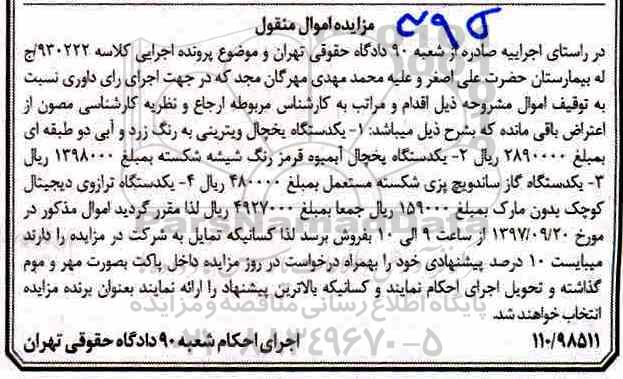 مزایده اموال منقول
۴۹۵
در راستای اجراییه صادره از شعبه ۹۰ دادگاه حقوقی تهران و موضوع پرونده اجرایی کلاسه ۹۳۰۲۲۲/ج
له بیمارستان حضرت علی اصغر و علیه محمد مهدی مهرگان مجد که در جهت اجرای رای داوری نسبت
به توقیف اموال مشروحه ذیل اقدام و مراتب به کارشناس مربوطه ارجاع و نظریه کارشناسی مصون از
اعتراض باقی مانده که بشرح ذیل میباشد: ۱- یکدستگاه یخچال ویترینی به رنگ زرد و آبی دو طبقه ای
بمبلغ ۲۸۹۰۰۰۰ ریال ۲- یکدستگاه یخچال آبمیوه قرمز رنگ شیشه شکسته بمبلغ ۱۳۹۸۰۰۰ ریال
۳- یکدستگاه گاز ساندویچ پزی شکسته مستعمل بمبلغ ۴۸۰۰۰۰ ریال ۴- یکدستگاه ترازوی دیجیتال
کوچک بدون مارک بمبلغ ۱۵۹۰۰۰ ریال جمعا بمبلغ ۴۹۲۷۰۰۰ ریال لذا مقرر گردید اموال مذکور در
مورخ ۱۳۹۷/۰۹/۲۰ از ساعت ۹ الی ۱۰ بفروش برسد لذا کسانیکه تمایل به شرکت در مزایده را دارند
میبایست ۱۰ درصد پیشنهادی خود را بهمراه درخواست در روز مزایده داخل پاکت بصورت مهر و موم
گذاشته و تحویل اجرای احکام نمایند و کسانیکه بالاترین پیشنهاد را ارائه نمایند بعنوان برنده مزایده
انتخاب خواهند شد.
پایگاه اطلاع رسانی مناقصه و مزایده
۰۲۱-۸۸۳۴۹۶۷۰-۵
۱۱۰/۹۸۵۱۱ اجرای احکام شعبه ۹۰ دادگاه حقوقی تهران